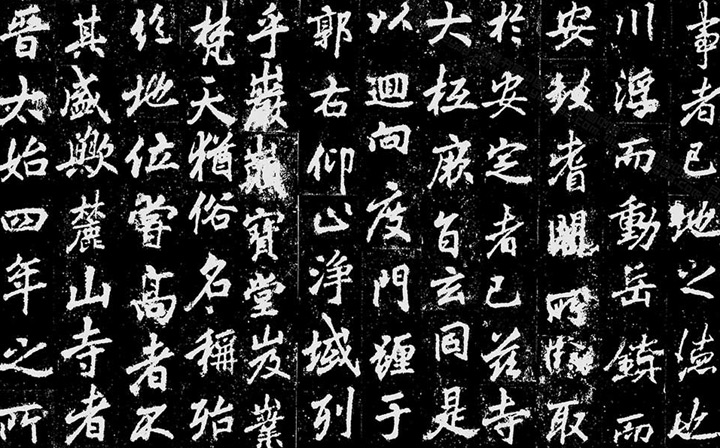 事者已地之德也
川浮而動岳鎮而
安故耆闍所臨取
於安定者已茲寺
大抵厥旨玄固是
以迴向度門躔于
郭右仰止淨域列
乎巖巓寶堂岌業
梵天猶俗名稱殆
絕地位嘗高者不
其盛歟麓山寺者
晉太始四年之所